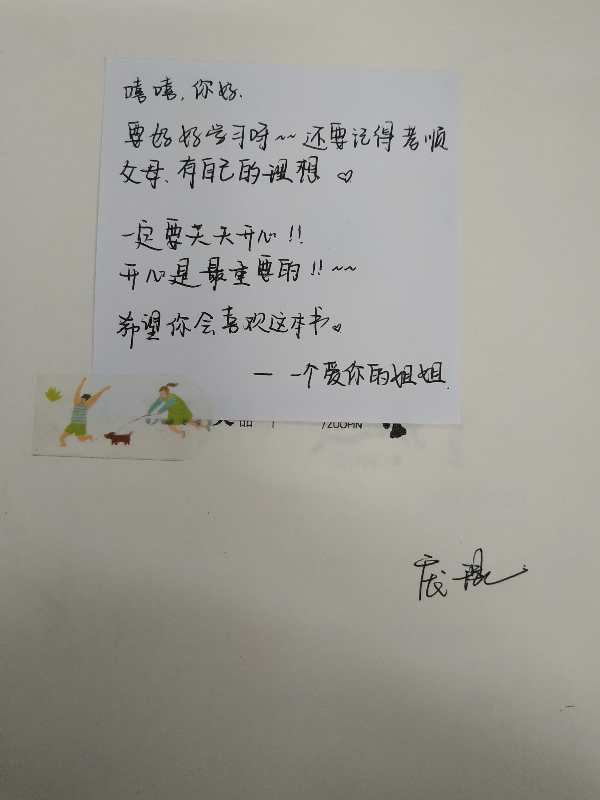 嘻嘻,你好.
要好好学习呀~~还要记得孝顺
父母、有自己的理想 ♡
一定要天天开心!!
开心是最重要的!!~~
希望你会喜欢这本书♡
— 一个爱你的姐姐
/ZUOPIN